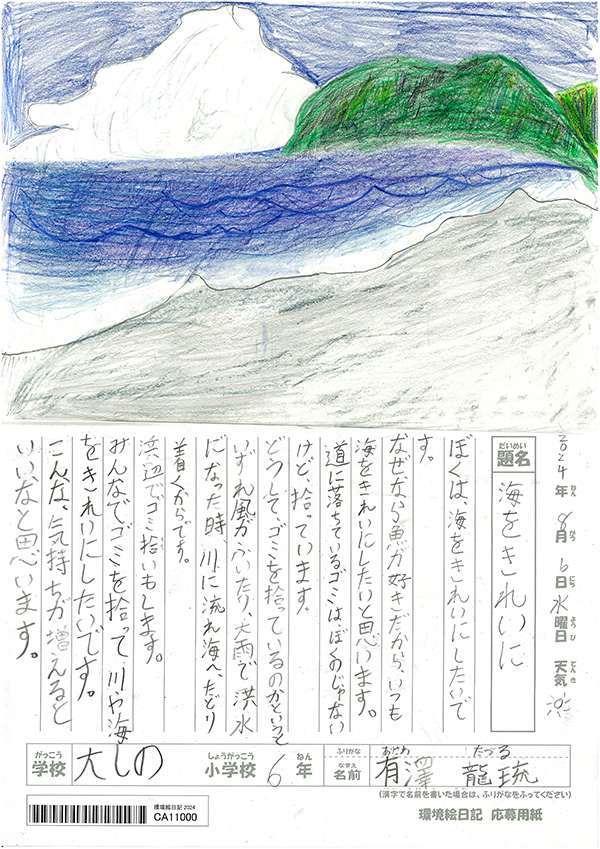 2024年ねん 8月がつ 6日にち 水曜日ようび 天気てんき
だいめい
題名
海をきれいに
ぼくは、海をきれいにしたいで
す。
なぜなら魚が好きだから、いつも
海をきれいにしたいと思います。
道に落ちているゴミはぼくのじゃない
けど、拾っています。
どうして、ゴミを拾っているのかというと
いずれ風がふいたり、大雨で洪水
になった時、川に流れ海へ、たどり
着くからです。
浜辺でゴミ拾いもします。
みんなでゴミを拾って、川や海
をきれいにしたいです。
こんな、気持ちが増えると
いいなと思います。
がっこう
学校
大しの
しょうがっこう
小学校
6
ねん
年
ふりがな
なまえ
名前
ありさわ たつる
有澤 龍琉
(漢字で名前を書いた場合は、ふりがなをふってください)
環境絵日記 2024
CA11000
環境絵日記 応募用紙